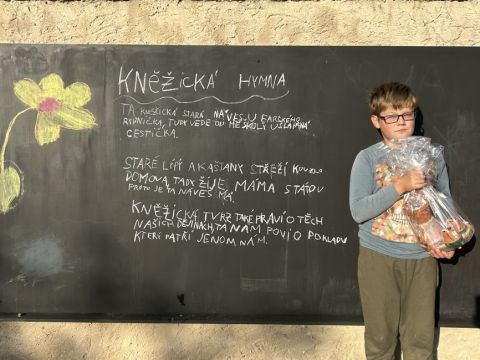 KNĚŽICKÁ HYMNA
TA KNĚŽICKÁ STARÁ NÁVES, U FARSKÉHO
RYBNÍČKA, TUDY VEDE OD MÉ ŠKOLY UŠLAPANÁ
CESTIČKA.
STARÉ LÍPY A KAŠTANY STŘEŽÍ KOUZLO
DOMOVA, TADY ŽIJE MÁMA S TÁTOU
PROTO JE TA NÁVES MÁ.
KNĚŽICKÁ TVRZ TAKÉ PRAVÍ O TĚCH
NAŠICH DĚJINÁCH, TA NÁM POVÍ O POKLADU
KTERÝ PATŘÍ JENOM NÁM.